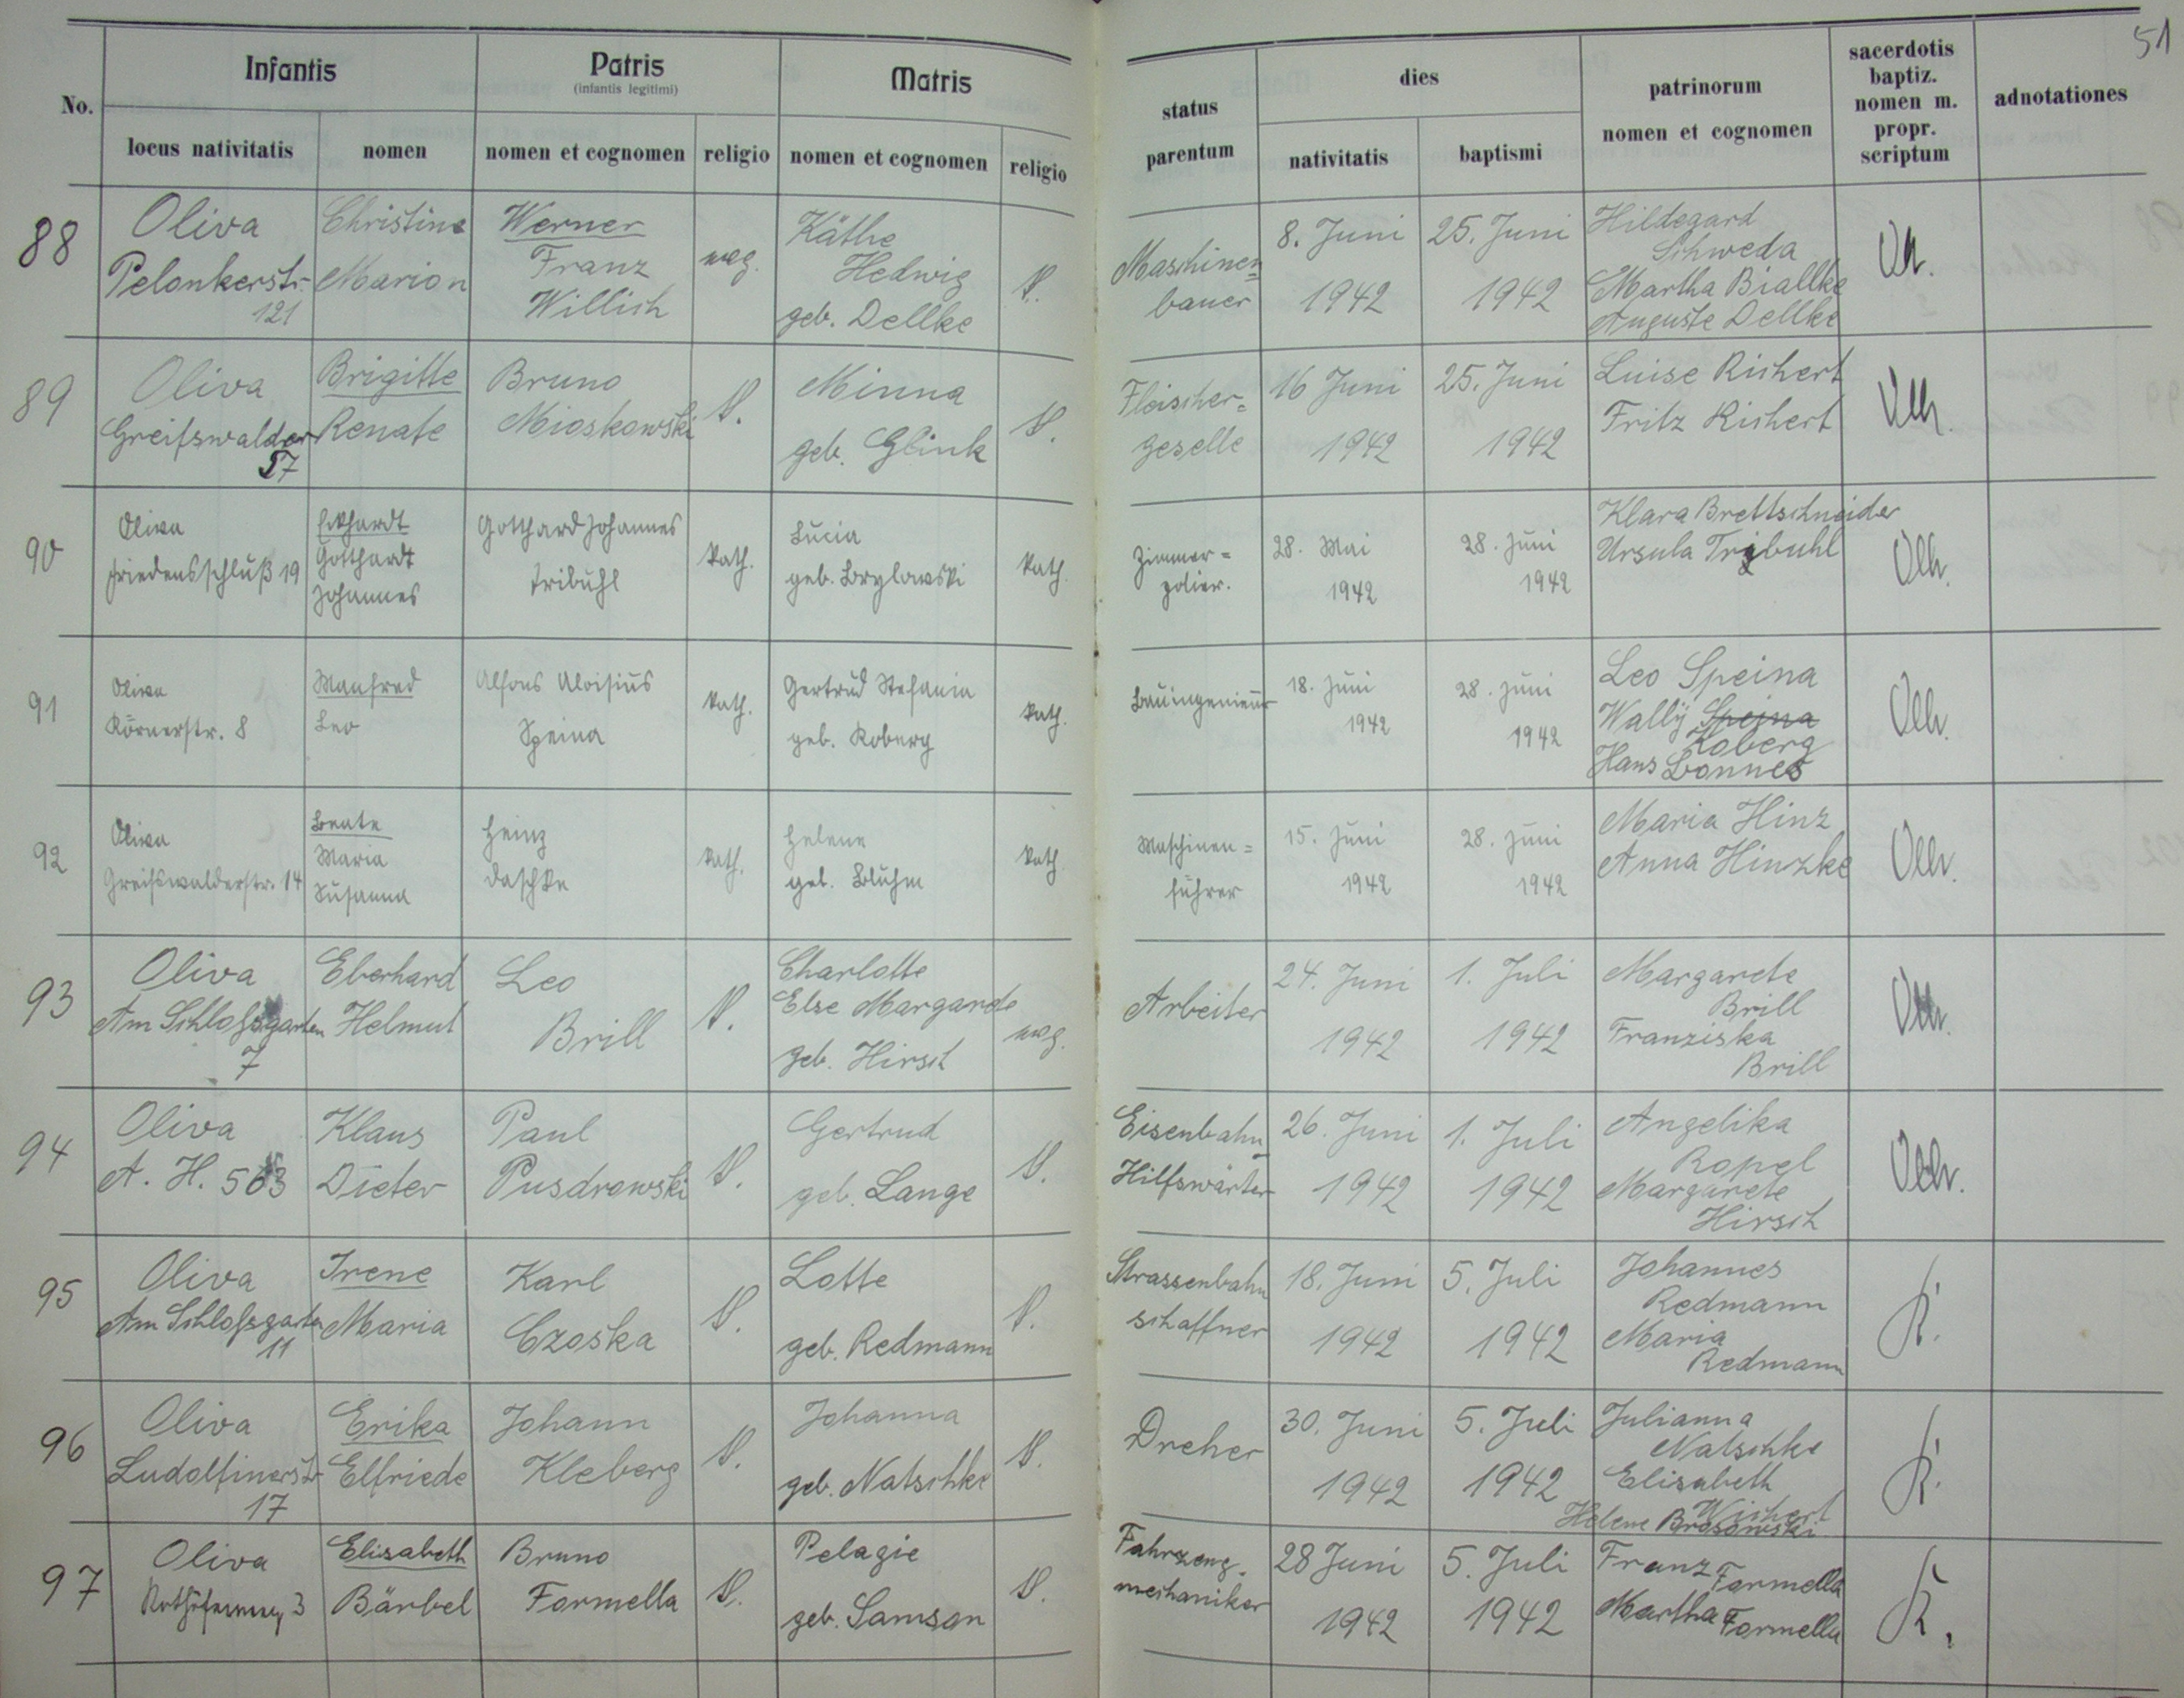 51
No.
Infantis
Patris
(infantis legitimi)
Matris
status
parentum
dies
patrinorum
nomen et cognomen
sacerdotis
baptiz.
nomen m.
propr.
scriptum
adnotationes
locus nativitatis
nomen
nomen et cognomen
religio
nomen et cognomen
religio
nativitatis
baptismi
88
Oliva
Pelonkerstr.
121
Christine
Marion
Werner
Franz
Willich
Käthe
Hedwig
geb. Dellke
Maschinen=
bauer
8. Juni
1942
25. Juni
1942
Hildegard
Schweda
Martha Biallke
Auguste Dellke
89
Oliva
Greifswalder
57
Brigitte
Renate
Bruno
Mioskowski
Minna
geb. Glink
Fleischer=
geselle
16 Juni
1942
25. Juni
1942
Luise Richert
Fritz Richert
90
Oliva
Friedensschluß 19
Eckhardt
Gotthardt
Johannes
Gotthard Johannes
Tribuhl
kath.
Lucia
geb. Brylowski
kath.
Zimmer=
polier.
28. Mai
1942
28. Juni
1942
Klara Brettschneider
Ursula Tribuhl
91
Oliva
Körnerstr. 8
Manfred
Leo
Alfons Aloisius
Speina
kath.
Gertrud Stefania
geb. Koberg
kath.
Bauingenieur
18. Juni
1942
28. Juni
1942
Leo Speina
Wally Speina
Koberg
Hans Bonnes
92
Oliva
Greifswalderstr. 14
Beate
Maria
Susanna
Heinz
Daschke
kath.
Helene
geb. Bluhm
kath
Maschinen=
führer
15. Juni
1942
28. Juni
1942
Maria Hinz
Anna Hinzke
93
Oliva
Am Schloßgarten
7
Eberhard
Helmut
Leo
Brill
Charlotte
Else Margarete
geb. Hirsch
Arbeiter
24. Juni
1942
1. Juli
1942
Margarete
Brill
Franziska
Brill
94
Oliva
A. H. 503
Klaus
Dieter
Paul
Pusdrowski
Gertrud
geb. Lange
Eisenbahn
Hilfswärter
26. Juni
1942
1. Juli
1942
Angelika
Ropel
Margarete
Hirsch
95
Oliva
Am Schloßgarten
11
Irene
Maria
Karl
Czoska
Lotte
geb. Redmann
Strassenbahn
schaffner
18. Juni
1942
5. Juli
1942
Johannes
Redmann
Maria
Redmann
96
Oliva
Ludolfinerstr
17
Erika
Elfriede
Johann
Kleberg
Johanna
geb. Natschke
Dreher
30. Juni
1942
5. Juli
1942
Julianna
Natschke
Elisabeth
Wichert
Helene Brosowski
97
Oliva
3
Elisabeth
Bärbel
Bruno
Formella
Pelagie
geb. Samson
Fahrzeug-
mechaniker
28 Juni
1942
5. Juli
1942
Franz Formella
Martha Formella
K.